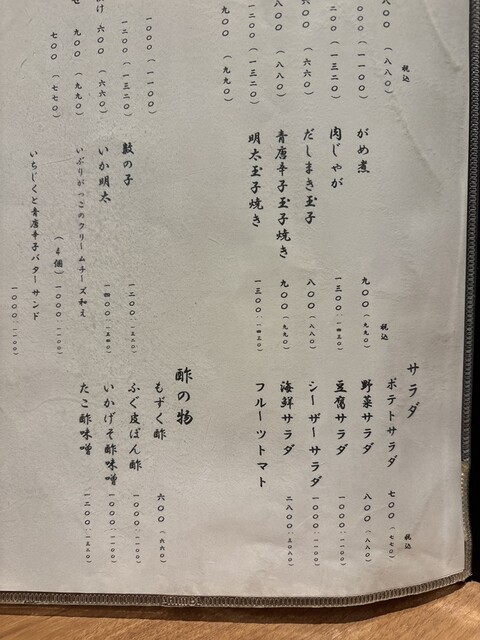 税込
八〇〇(八八〇)
一〇〇〇(一一〇〇)
一二〇〇(一三二〇)
〇〇(六六〇)
八〇〇(八八〇)
一二〇〇(一三二〇)
九〇〇(九九〇)
一〇〇〇(一一〇〇)
一二〇〇(一三二〇)
け 六〇〇(六六〇)
せ 九〇〇(九九〇)
七〇〇(七七〇)
税込
がめ煮 九〇〇(九九〇)
肉じゃが 一三〇〇(一四三〇)
だしまき玉子 八〇〇(八八〇)
青唐辛子玉子焼き 九〇〇(九九〇)
明太玉子焼き 一三〇〇(一四三〇)
数の子 一二〇〇(一三二〇)
いか明太 一四〇〇(一五四〇)
いぶりがっこのクリームチーズ和え
(4個) 一〇〇〇(一一〇〇)
いちじくと青唐辛子バターサンド 一〇〇〇(一一〇〇)
サラダ
税込
ポテトサラダ 七〇〇(七七〇)
野菜サラダ 八〇〇(八八〇)
豆腐サラダ 一〇〇〇(一一〇〇)
シーザーサラダ 一〇〇〇(一一〇〇)
海鮮サラダ 二八〇〇(三〇八〇)
フルーツトマト
酢の物
もずく酢 六〇〇(六六〇)
ふぐ皮ぽん酢 一〇〇〇(一一〇〇)
いかげそ酢味噌 一〇〇〇(一一〇〇)
たこ酢味噌 一二〇〇(一三二〇)